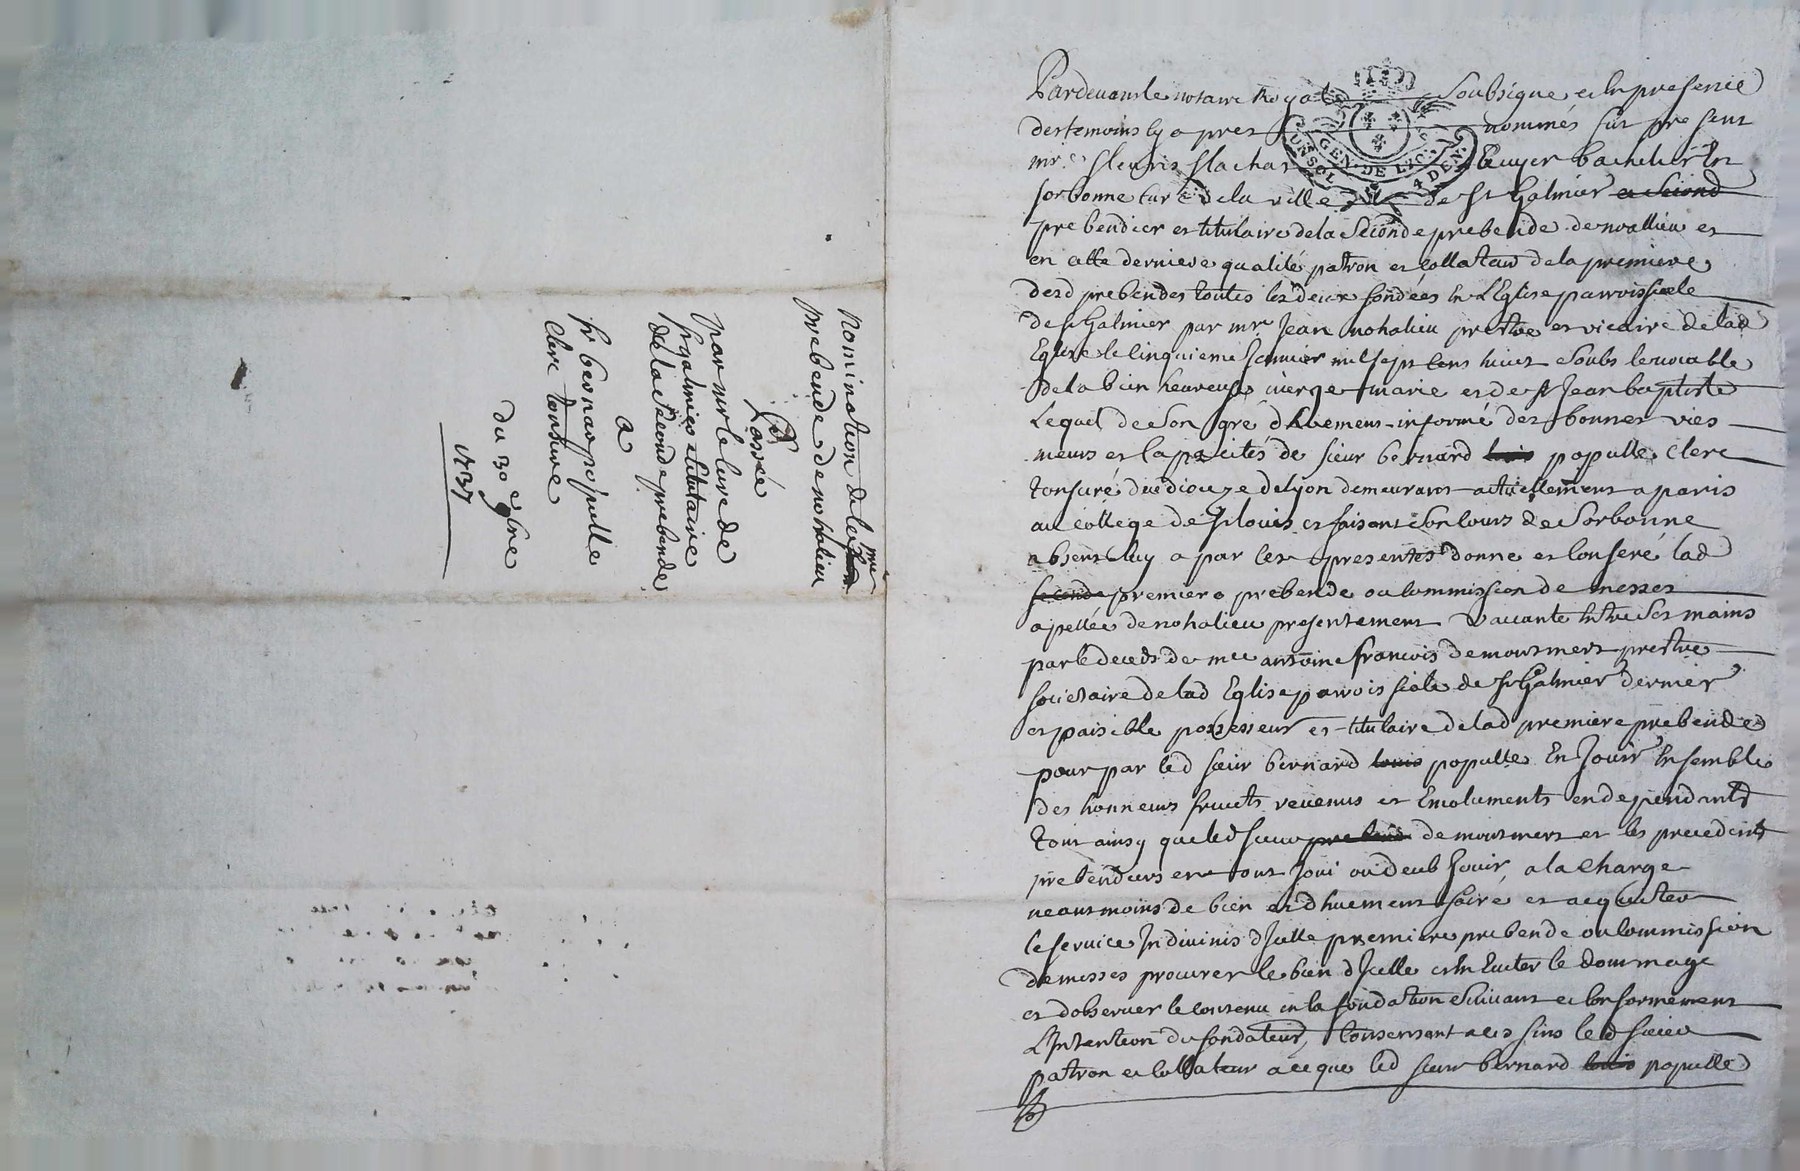 nomination de la p^mre
prebende de nohalieu
Cassée
par mr le curé de
st galmier titulaire
de la seconde prebende
a
sr bernard populle
clerc tonsuré
du 30e
1737
Pardevant le notaire Royal soubsigné et en presence
des temoins cy apres nommés fut present
mre fleuris flachat Ecuyer bachelier en
sorbonne curé de la ville de st Galmier et second
prebendier et titulaire de la seconde prebende de noallieu et
en cette derniere qualité patron et collateur de la premiere
desd prebendes toutes les deux fondées en L'Eglise parroissiale
de st Galmier par mre Jean nohalieu prestre et vicaire de lad
Eglise le cinquieme Janvier mil sept cens huict soubs le vocable
de la bien heureuse vierge marie et de st Jean baptiste
Lequel de son gré dhuement informé des bonnes vies
meurs et capacités de sieur bernard louis populle clerc
tonsuré du dioceze de lyon demeurant actuellement a paris
au college de st louis et faisant son cours de sorbonne
absent luy a par ces presentes donné et conferé lad
seconde premiere prebende ou commission de messes
apellée de nohalieu presentement vaccante entre ses mains
par le deceds de mre antoine francois demontmert prestre
societaire de lad Eglise parroissiale de st Galmier dernier
et paisible possesseur et titulaire de lad premiere prebende
pour par led sieur bernard louis populle En Jouir Ensemble
des honneurs fruicts revenus et Emoluments en dependants
tout ainsy que led sieur demontmert et les precedents
prebendiers en ont Joui ou deub Jouir, a la charge
neantmoins de bien et dhuement faire et acquitter
le service In divinis d'Icelle premiere prebende ou commission
de messes procurer le bien d'Icelle en Eviter le dommage
et d'observer le contenu en la fondation suivant et conformement
L'Intention du fondateur, consentant a ces fins led sieur
patron et collateur a ce que led sieur bernard louis populle
GEN. DE LYON
UN SOL 4 DEN.